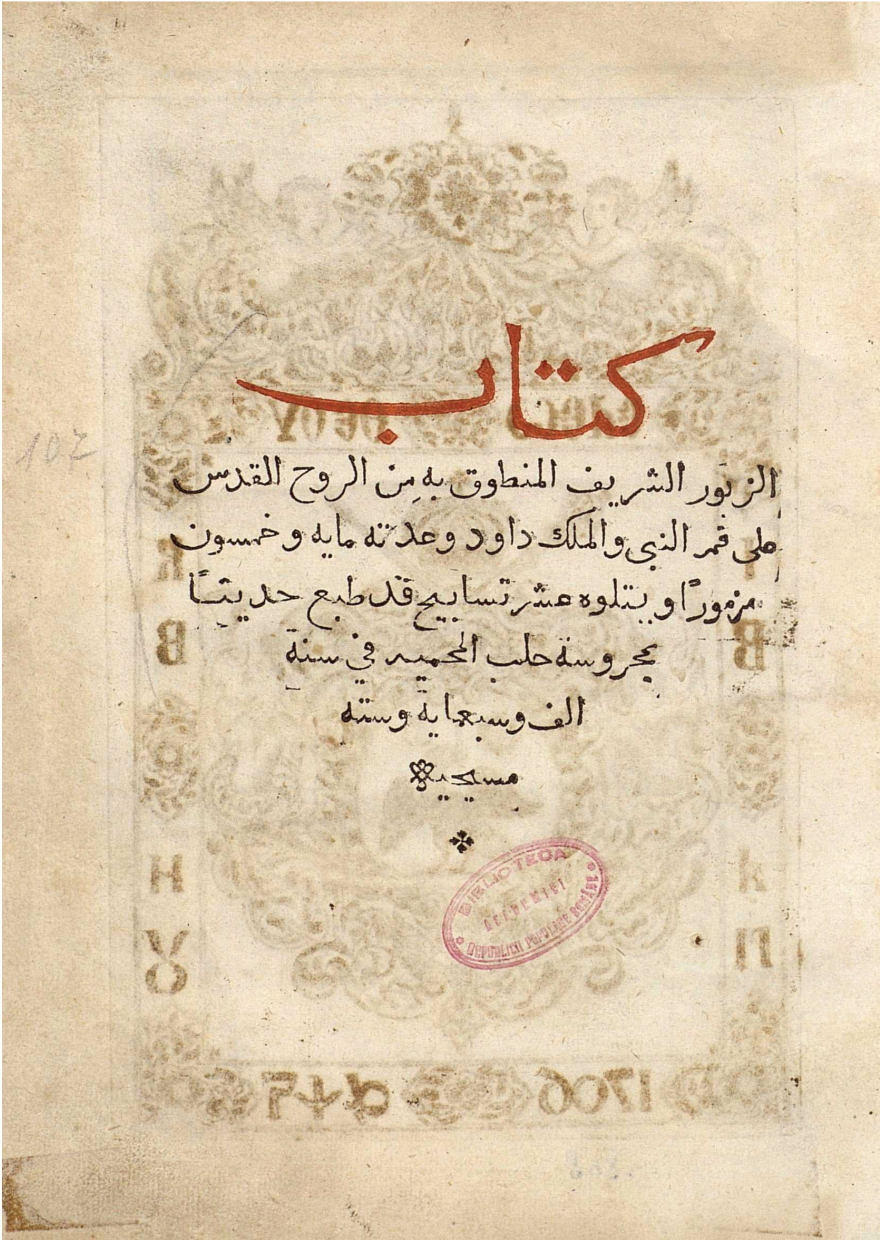 كتاب
الزبور الشريف المنطوق به من الروح القدس
على فم النبي والملك داود وعدته مايه وخمسون
مزمورًا ويتلوه عشر تسابيح قد طبع حديثًا
بمحروسة حلب المحميه في سنة
الف وسبعماية وسته
مسيحيه
102
BIBLIOTECA
ACADEMIEI
REPUBLICII POPULARE ROMÂNE
1706